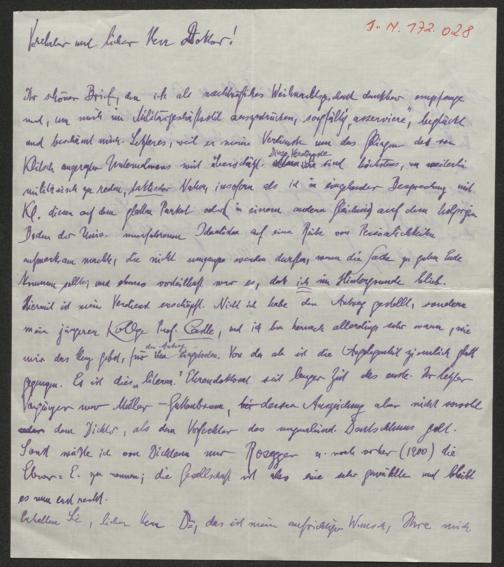 J. N. 172.028
Verehrter und lieber Herr Doktor!
Ihr schöner Brief, den ich als nachträgliches Weihnachtsgeschenk dankbar empfange
und, um mich im Militärgeschäftsstil auszudrücken, sorgfältig „asserviere", beglückt
und beschämt mich. Letzteres, weil er meine Verdienste um das Gelingen des von
Klitsch angeregten Unternehmens weit überschätzt. Diese Verdienste sind höchstens, um weiterhin
militärisch zu reden, taktischer Natur, insofern als ich in eingehender Besprechung mit
Kl. diesen auf dem glatten Parkett oder in einem andern Gleichnis auf dem holprigen
Boden der Univ. unerfahrenen Idealisten auf eine Reihe von Persönlichkeiten
aufmerksam machte, die nicht umgangen werden durften, wenn die Sache zu gutem Ende
kommen sollte, und ebenso vorteilhaft war es, daß ich im Hintergrunde blieb.
Hiermit ist mein Verdienst erschöpft. Nicht ich habe den Antrag gestellt, sondern
mein jüngerer Kollege Prof. Castle, und ich bin hernach allerdings sehr warm, wie
mir das Herz gebot, für den Antrag eingetreten. Von da ab ist die Angelegenheit ziemlich glatt
gegangen. Es ist dies „literar." Ehrendoktorat seit langer Zeit das erste. Ihr letzter
Vorgänger war Müller-Guttenbrunn, dessen Auszeichnung aber nicht sowohl
dem Dichter, als dem Verfechter des ungarländ. Deutschtums galt.
Sonst wüßte ich von Dichtern nur Rosegger u. noch vorher (1900) die
Ebner-E. zu nennen; die Gesellschaft ist also eine sehr gewählte und bleibt
es nun erst recht.
Erhalten Sie, lieber Herr Dr., das ist mein aufrichtiger Wunsch, Ihre mich